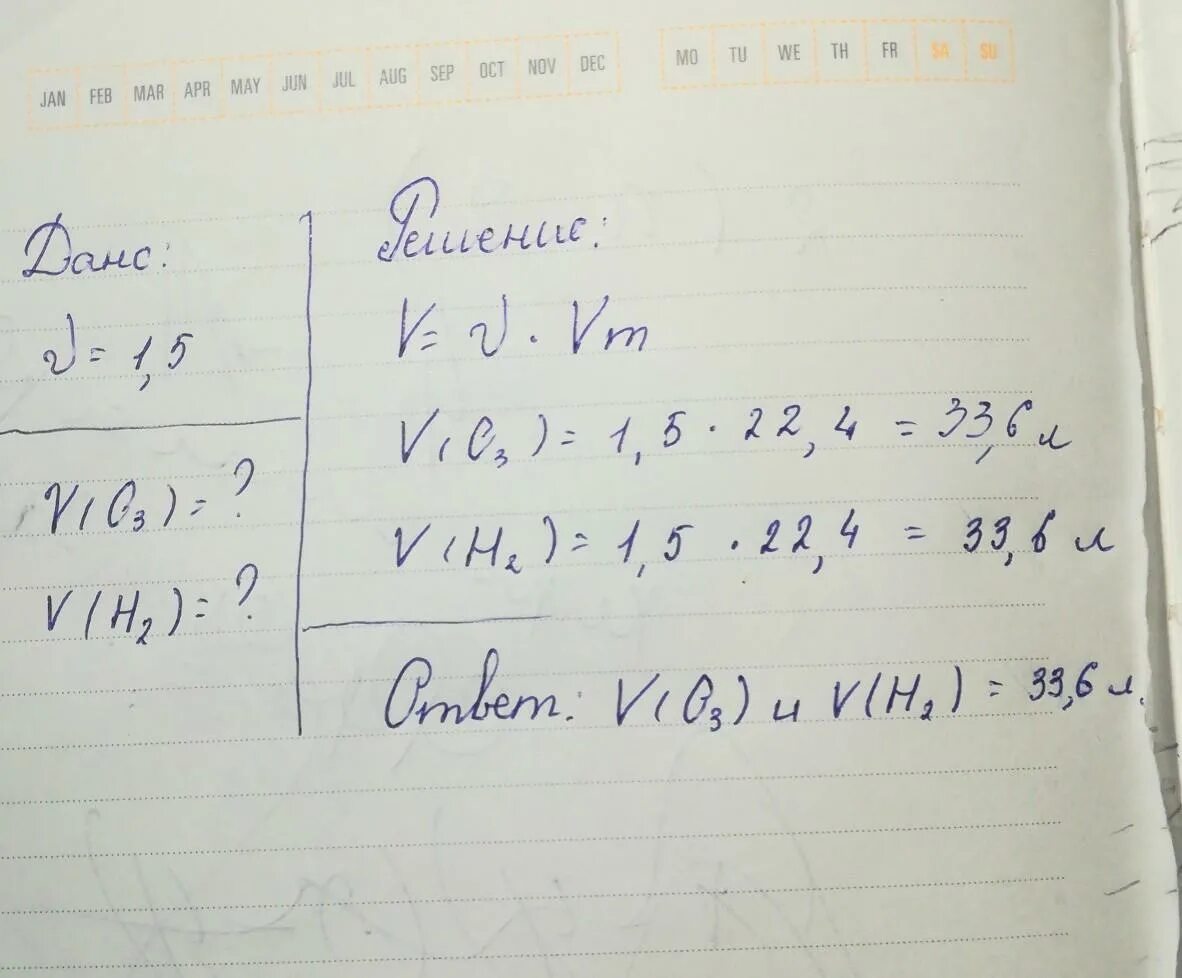 JAN FEB MAR APR MAY JUN JUL AUG SEP OCT NOV DEC MO TU WE TH FR SA SU
Дано:
ν = 1,5
V(O₃) = ?
V(H₂) = ?
Решение:
V = ν · Vm
V(O₃) = 1,5 · 22,4 = 33,6 л
V(H₂) = 1,5 · 22,4 = 33,6 л
Ответ: V(O₃) и V(H₂) = 33,6 л.